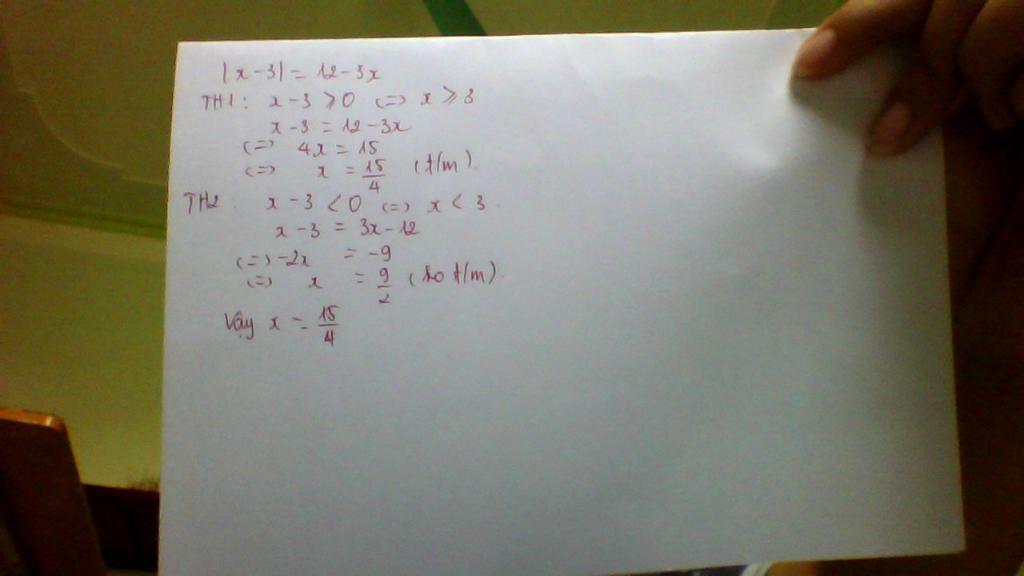 |x-3| = 12-3x
TH1: x-3 ≥ 0 (=) x ≥ 3
x-3 = 12-3x
(=) 4x = 15
(=) x = 15/4 (t/m).
TH2: x-3 < 0 (=) x < 3.
x-3 = 3x-12
(=) -2x = -9
(=) x = 9/2 (ko t/m).
Vậy x = 15/4